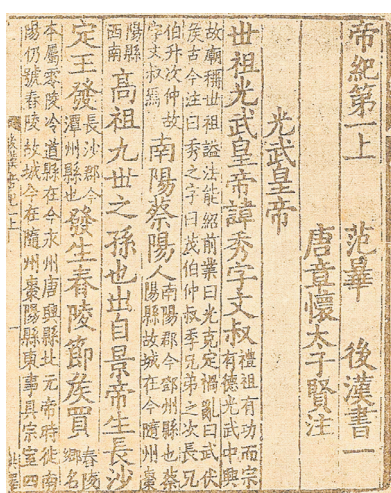 帝紀第一上　范曄　後漢書一
唐章懷太子賢注
光武皇帝
世祖光武皇帝諱秀字文叔禮祖有功而宗有德光武中興
故廟稱世祖謚法能紹前業曰光克定禍亂曰武伏侯古今注曰秀之字曰茂伯仲叔季兄弟之次長兄
伯升次仲故字文叔焉南陽蔡陽人南陽郡今鄧州縣也蔡陽縣故城在今隨州棗
陽縣西南高祖九世之孫也出自景帝生長沙
定王發長沙郡今潭州縣也發生舂陵節侯買舂陵鄉名
本屬零陵泠道縣在今永州唐興縣北元帝時徙南陽仍號舂陵故城今在隨州棗陽縣東事具宗室四